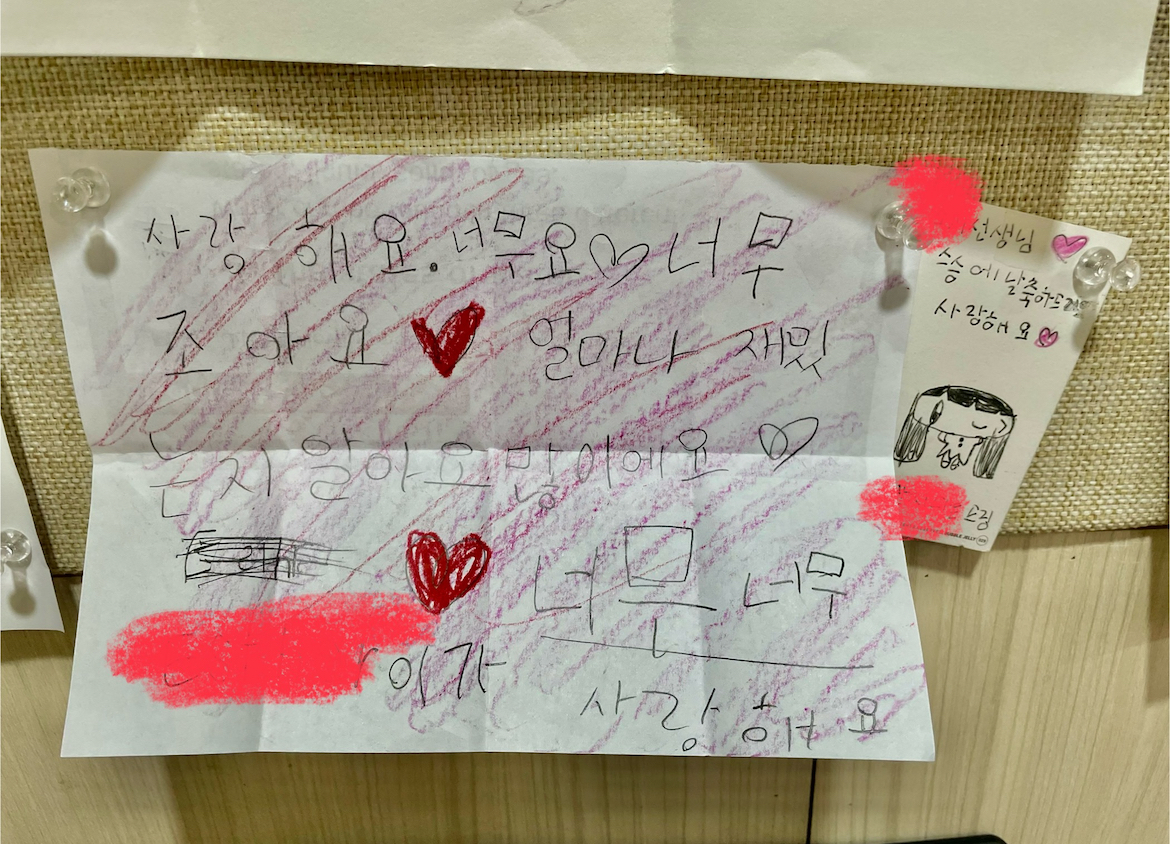 사랑 해요. 너무요♡ 너무
조아요 ♥ 얼마나 재밌
는지 알아요 많이에요 ♡
♥ 너무 너무
이가
사랑해요
선생님 ♥
승에날축하드려요
사랑해요 ♥
드림